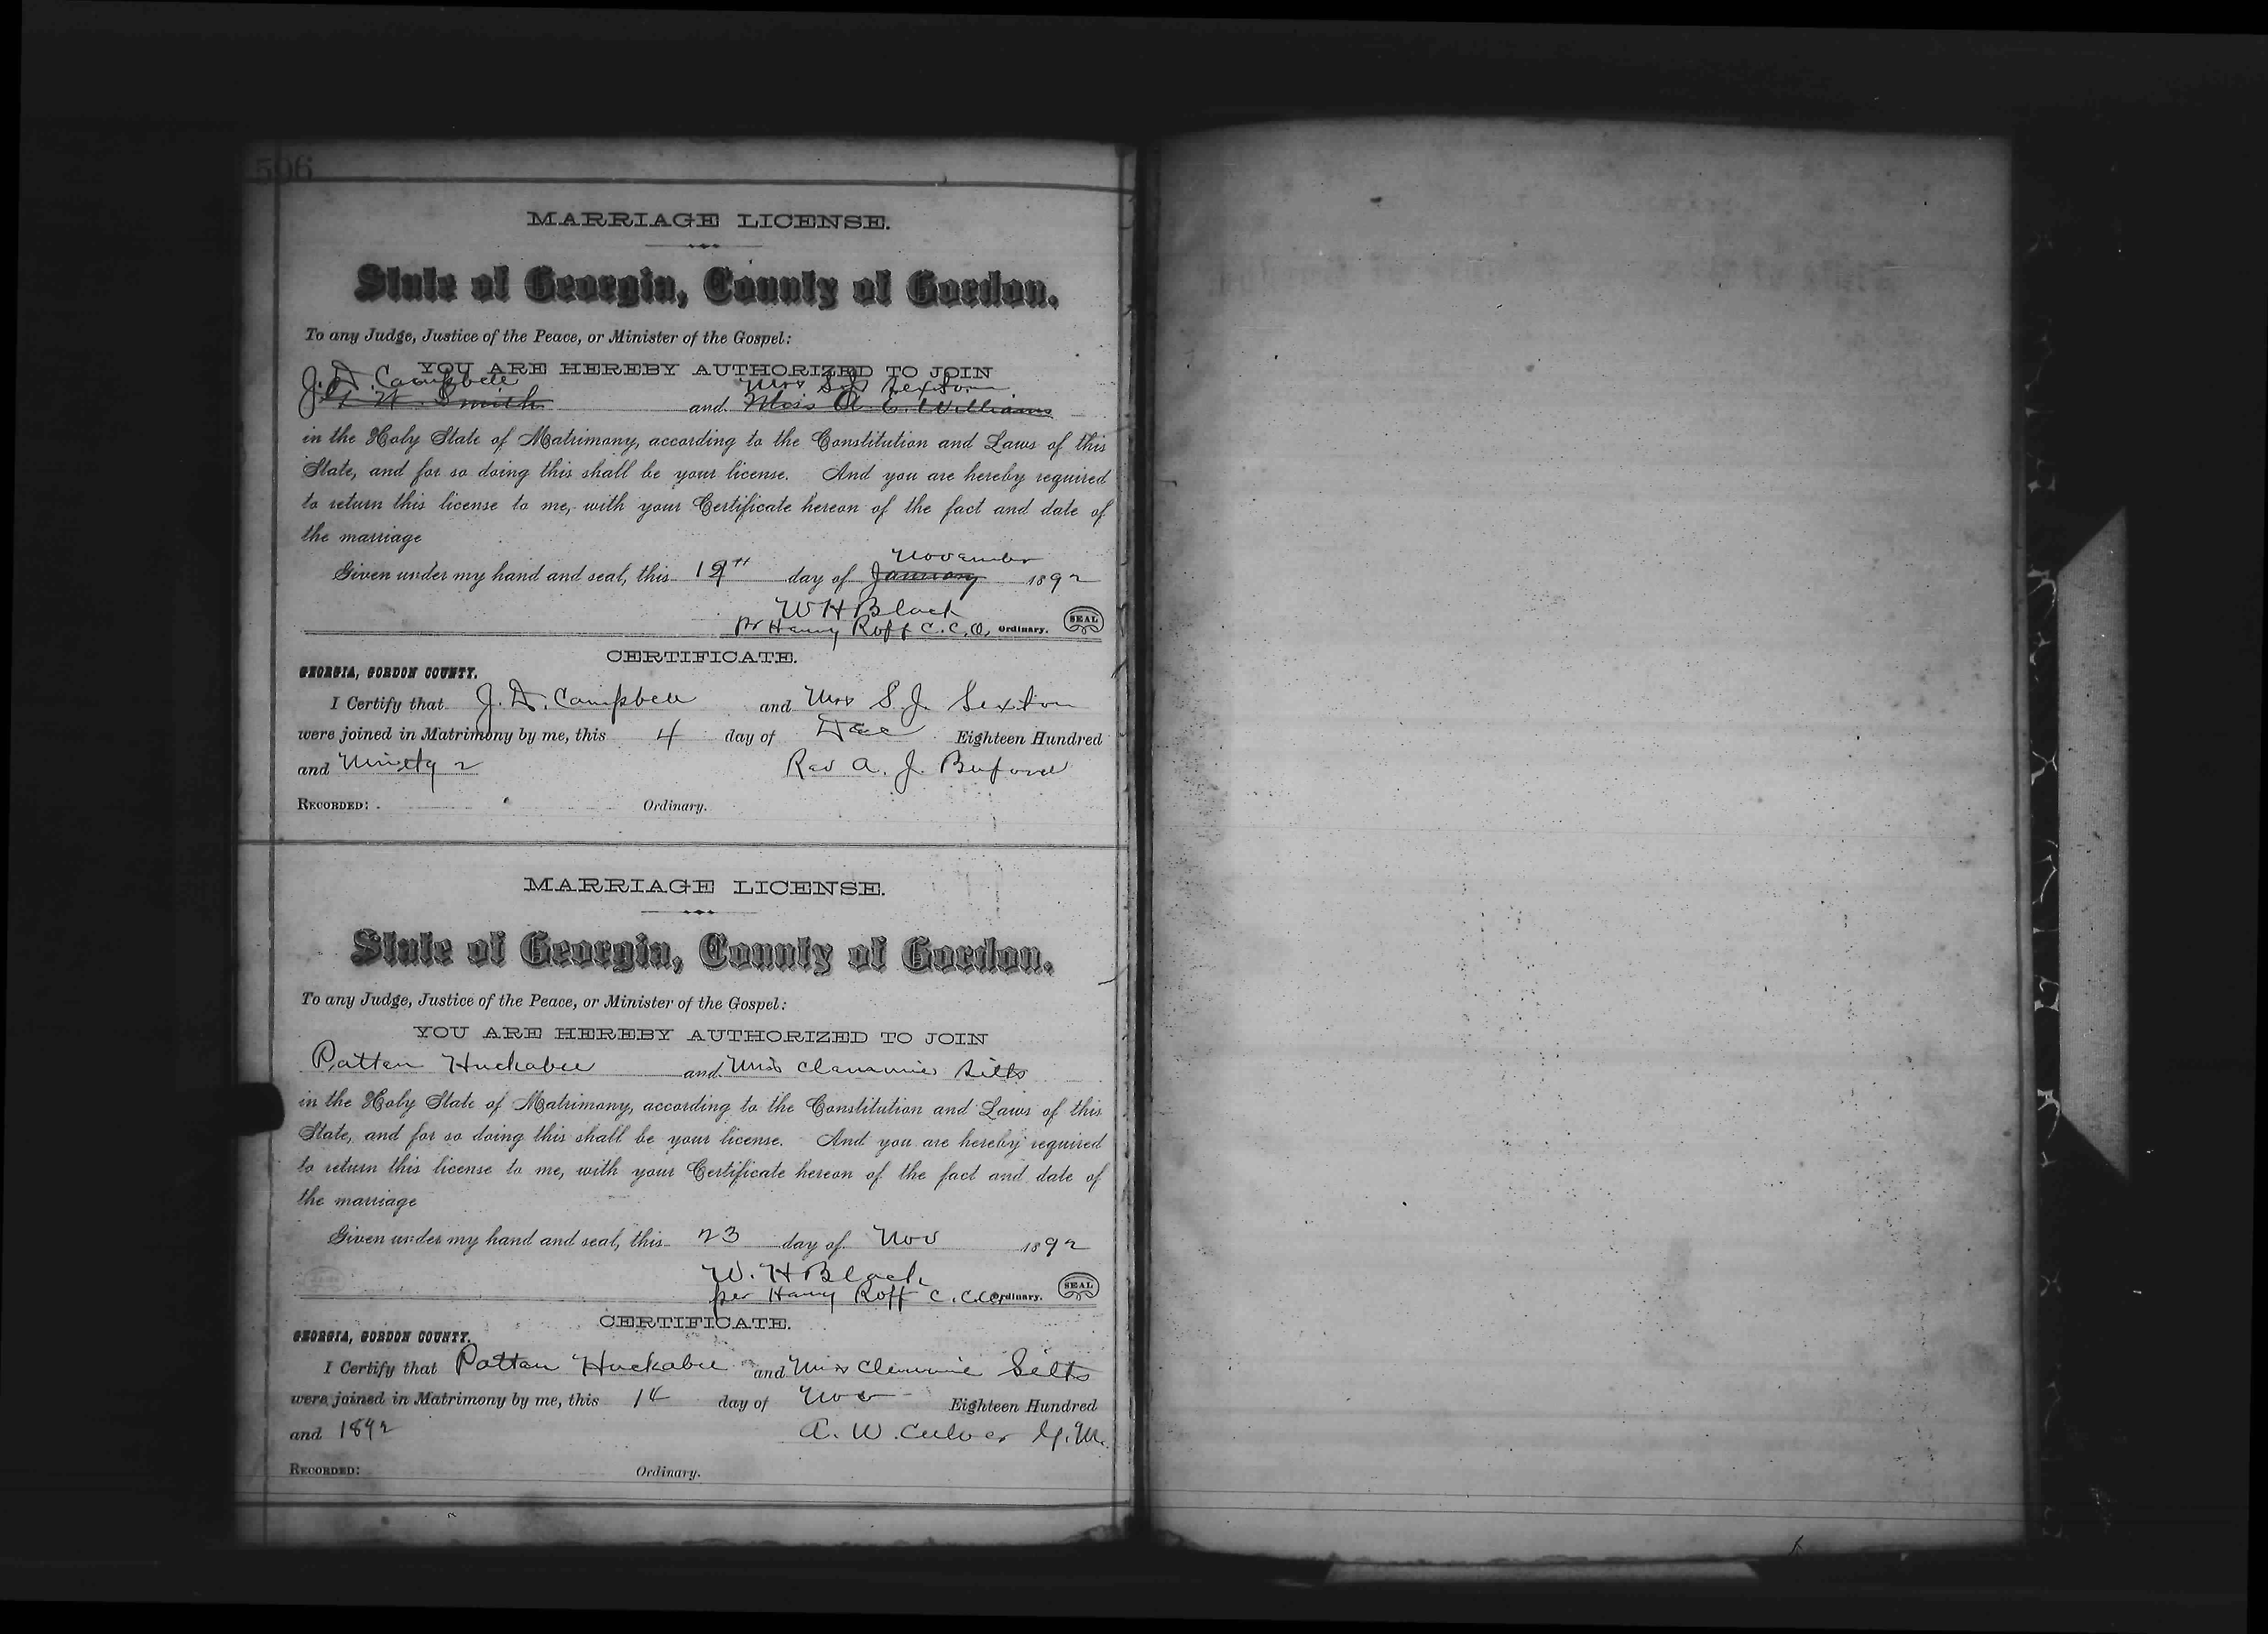 506
MARRIAGE LICENSE.
State of Georgia, County of Gordon.
To any Judge, Justice of the Peace, or Minister of the Gospel:
YOU ARE HEREBY AUTHORIZED TO JOIN
J. D. Campbell Mrs S J Sexton
W. Smith and Miss A. E. Williams
in the Holy State of Matrimony, according to the Constitution and Laws of this
State, and for so doing this shall be your license. And you are hereby required
to return this license to me, with your Certificate hereon of the fact and date of
the marriage
November
Given under my hand and seal, this day of January 1892
W H Black
pr Harry Roff C. C. O. Ordinary. SEAL
CERTIFICATE.
GEORGIA, GORDON COUNTY.
I Certify that J. D. Campbell and Mrs S. J. Sexton
were joined in Matrimony by me, this 4 day of Dec Eighteen Hundred
and Ninety 2 Rev A. J. Buford
RECORDED: Ordinary.
MARRIAGE LICENSE.
State of Georgia, County of Gordon.
To any Judge, Justice of the Peace, or Minister of the Gospel:
YOU ARE HEREBY AUTHORIZED TO JOIN
Patten Huckabee and Miss Clemmie Silts
in the Holy State of Matrimony, according to the Constitution and Laws of this
State, and for so doing this shall be your license. And you are hereby required
to return this license to me, with your Certificate hereon of the fact and date of
the marriage
Given under my hand and seal, this 23 day of Nov 1892
W. H Black
per Harry Roff C. C. O. Ordinary. SEAL
CERTIFICATE.
GEORGIA, GORDON COUNTY.
I Certify that Patten Huckabee and Miss Clemmie Silts
were joined in Matrimony by me, this 14 day of Nov Eighteen Hundred
and 1892 A. W. Culver
RECORDED: Ordinary.